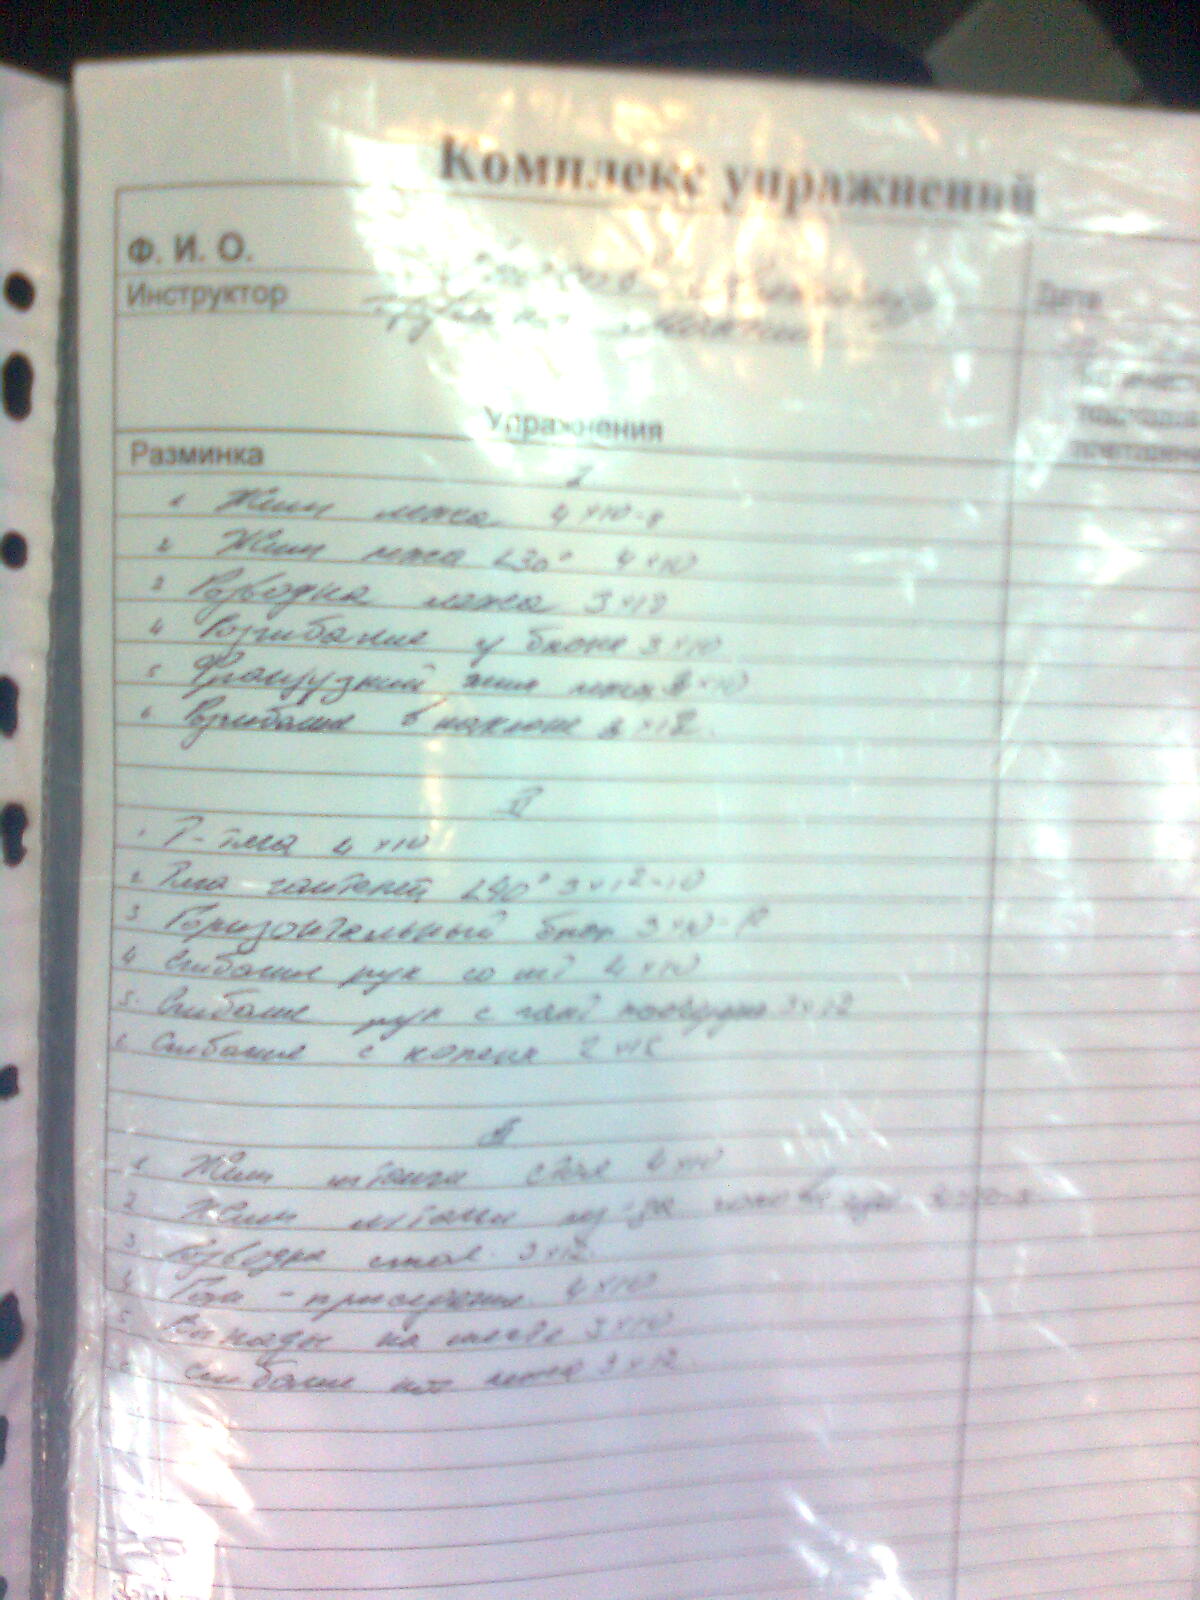 Комплекс упражнений
Ф. И. О.
Инструктор
Дата
Упражнения
Разминка
I
1 Жим лежа 4×10-8
2 Жим лежа ∠30° 4×10
3 Разводка лежа 3×12
4 Разгибание у блока 3×10
5 Французкий жим лежа ×10
6 Разгибание в наклоне ×12.
II
1 Т-тяга 4×10
2 Тяга гантелей ∠40° 3×12-10
3 Горизонтальный блок 3×10-12
4 Сгибание рук со шт 4×10
5. Сгибание рук с гант 3×12
6 Сгибание с колена 2×15
1 Жим штанги стоя 4×10
2 Жим штанги из-за
3 Разводка стоя. 3×12.
4 - приседания. 4×10
5 Выпады на месте 3×10
Сгибание ног лежа 3×12.